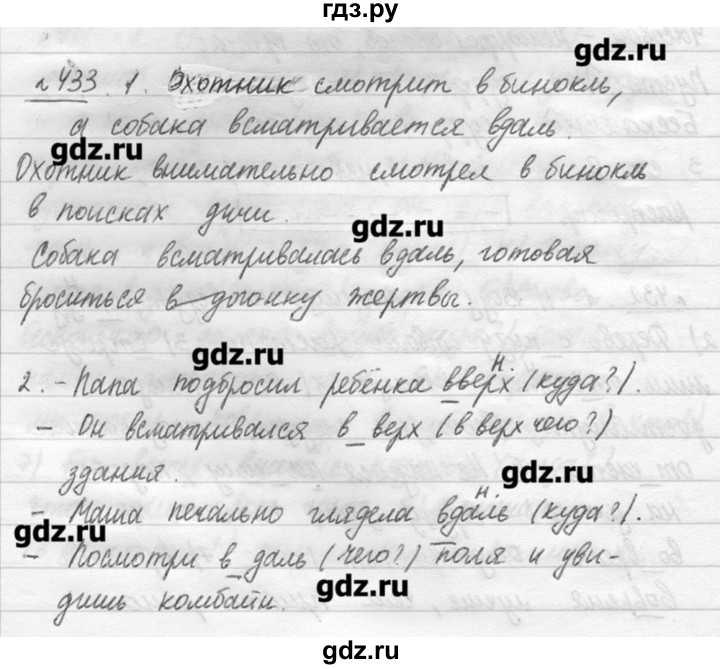 гдз.ру
gdz.ru
№433. 1. Охотник смотрит в бинокль,
а собака всматривается вдаль.
gdz.ru
Охотник внимательно смотрел в бинокль
в поисках дичи.
gdz.ru
Собака всматривалась вдаль, готовая
броситься в догонку жертвы.
gdz.ru
2. - Папа подбросил ребёнка вверх (куда?).
н.
- Он всматривался в верх (в верх чего?)
здания.
gdz.ru
- Маша печально глядела вдаль (куда?).
н.
gdz.ru
- Посмотри в даль (чего?) поля и уви-
дишь комбайн.
gdz.ru